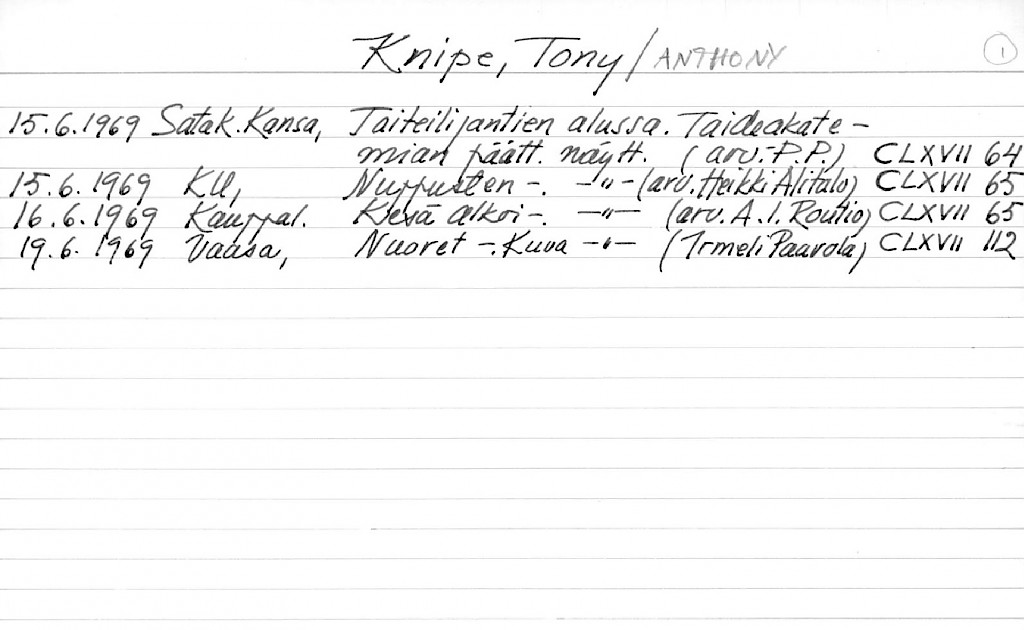 Knipe, Tony / ANTHONY 1
15.6.1969 Satak. Kansa, Taiteilijantien alussa. Taideakate-
mian päätt. näytt. (arv. P.P.) CLXVII 64
15.6.1969 KU, Nuppusten -. -"- (arv. Heikki Alitalo) CLXVII 65
16.6.1969 Kauppal. Kesä alkoi -. -"- (arv. A.I. Routio) CLXVII 65
19.6.1969 Vaasa, Nuoret -. Kuva -"- (Irmeli Paavola) CLXVII 112